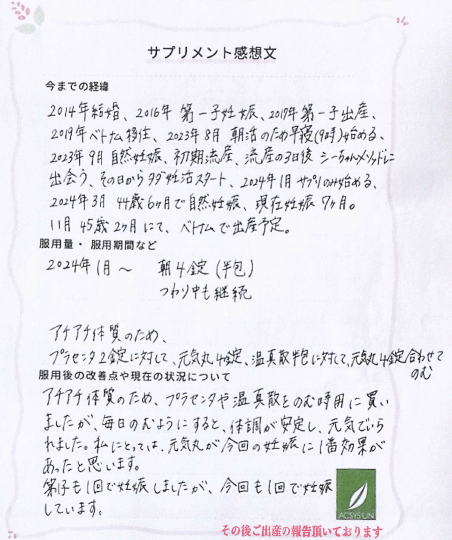 サプリメント感想文
今までの経緯
2014年結婚、2016年 第一子妊娠、2017年第一子出産、
2019年ベトナム移住、2023年8月 朝活のため早寝(9時)始める、
2023年9月自然妊娠、初期流産、流産の3日後 シーちゃんメソッドに
出会う、その日からタダ妊活スタート、2024年1月 サプリのみ始める、
2024年3月 44歳6ヶ月で自然妊娠、現在妊娠7ヶ月。
11月 45歳2ヶ月にて、ベトナムで出産予定。
服用量・服用期間など
2024年1月〜 朝4錠(半包)
つわり中も継続
アチアチ体質のため、
プラセンタ2錠に対して、元気丸4錠、温真散半包に対して、元気丸4錠合わせて
のむ
服用後の改善点や現在の状況について
アチアチ体質のため、プラセンタや温真散をのむ時用に買い
ましたが、毎日のむようにすると、体調が安定し、元気でいら
れました。私にとっては、元気丸が今回の妊娠に1番効果が
あったと思います。
第1子も1回で妊娠しましたが、今回も1回で妊娠
しています。
ACSYSUN
その後ご出産の報告頂いております